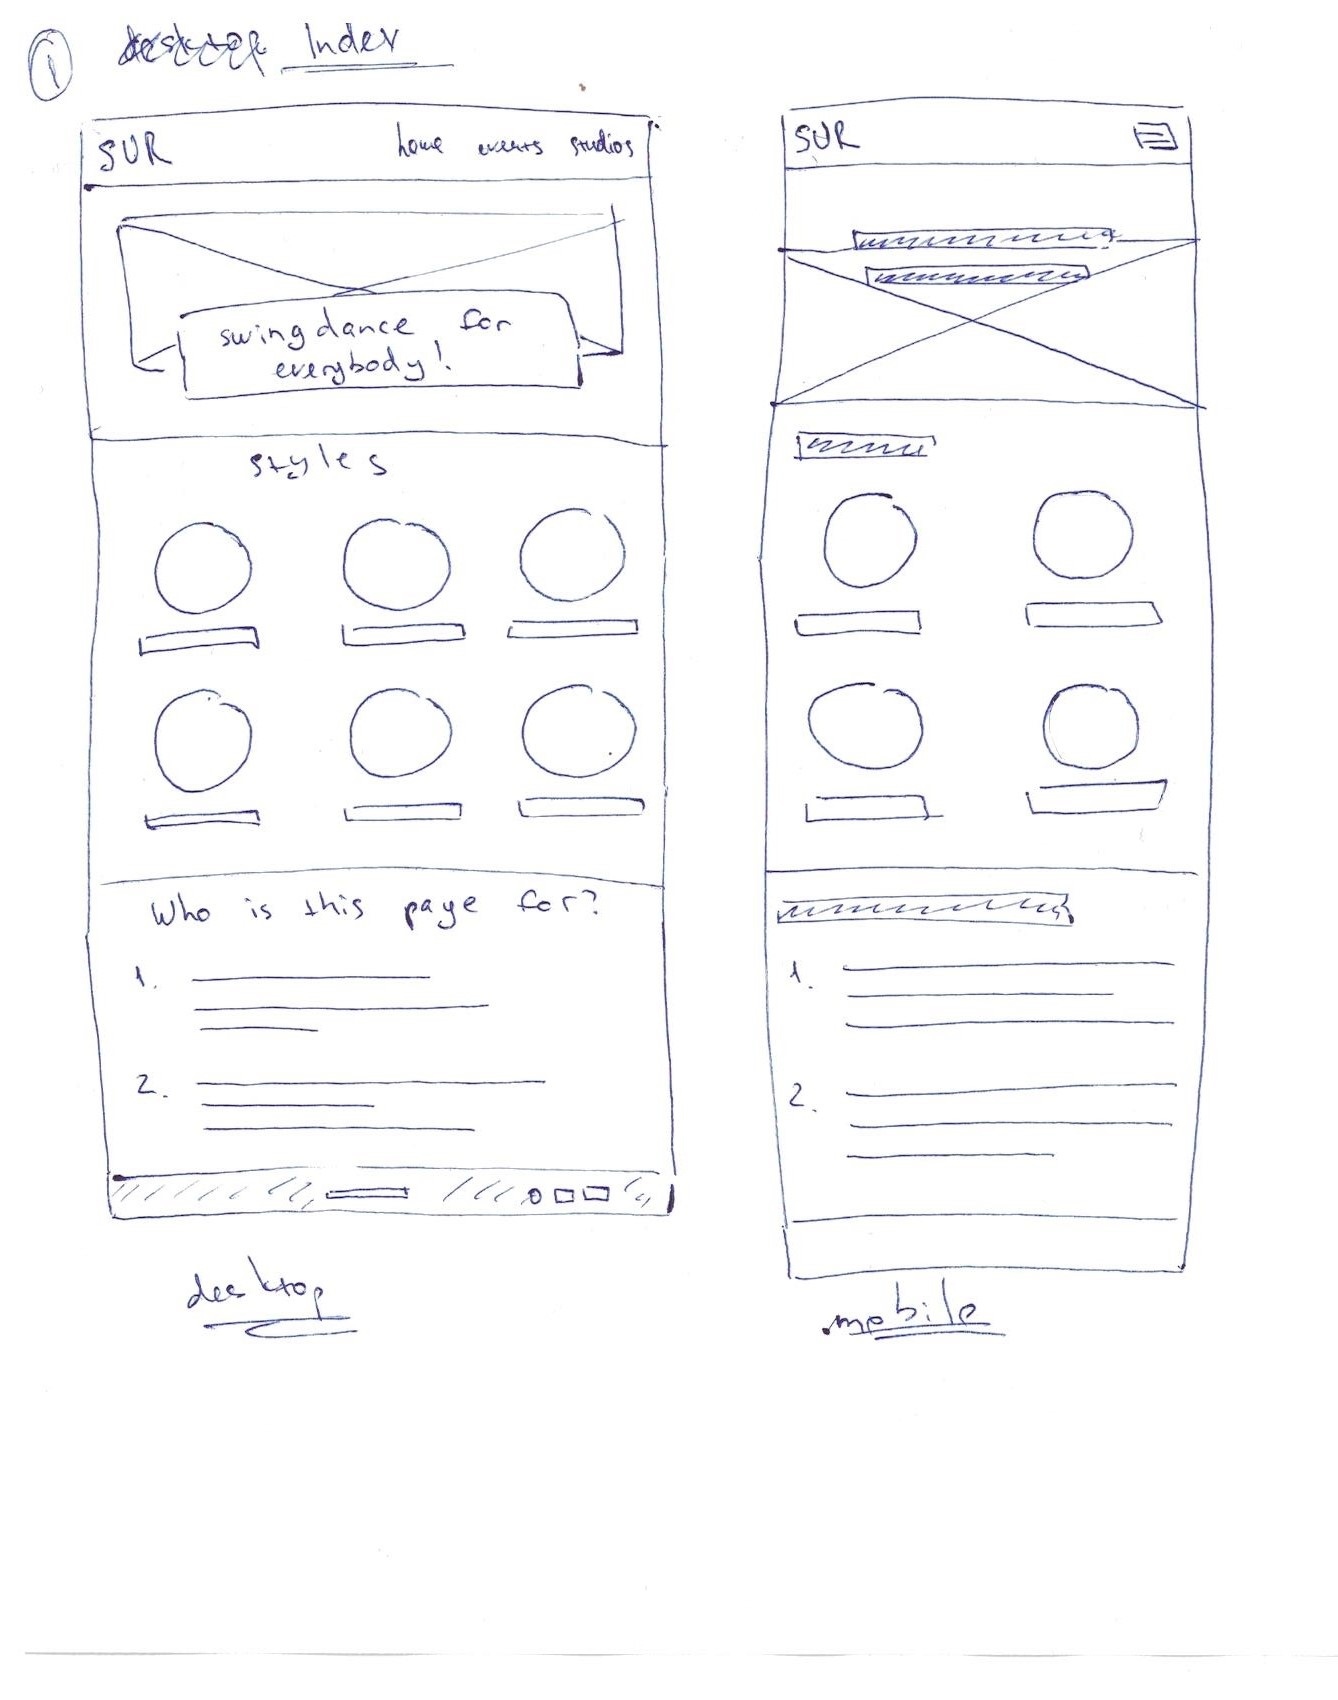 1 Index
SUR home events studios
swing dance for
everybody!
styles
Who is this page for?
1.
2.
desktop
SUR
1.
2.
mobile